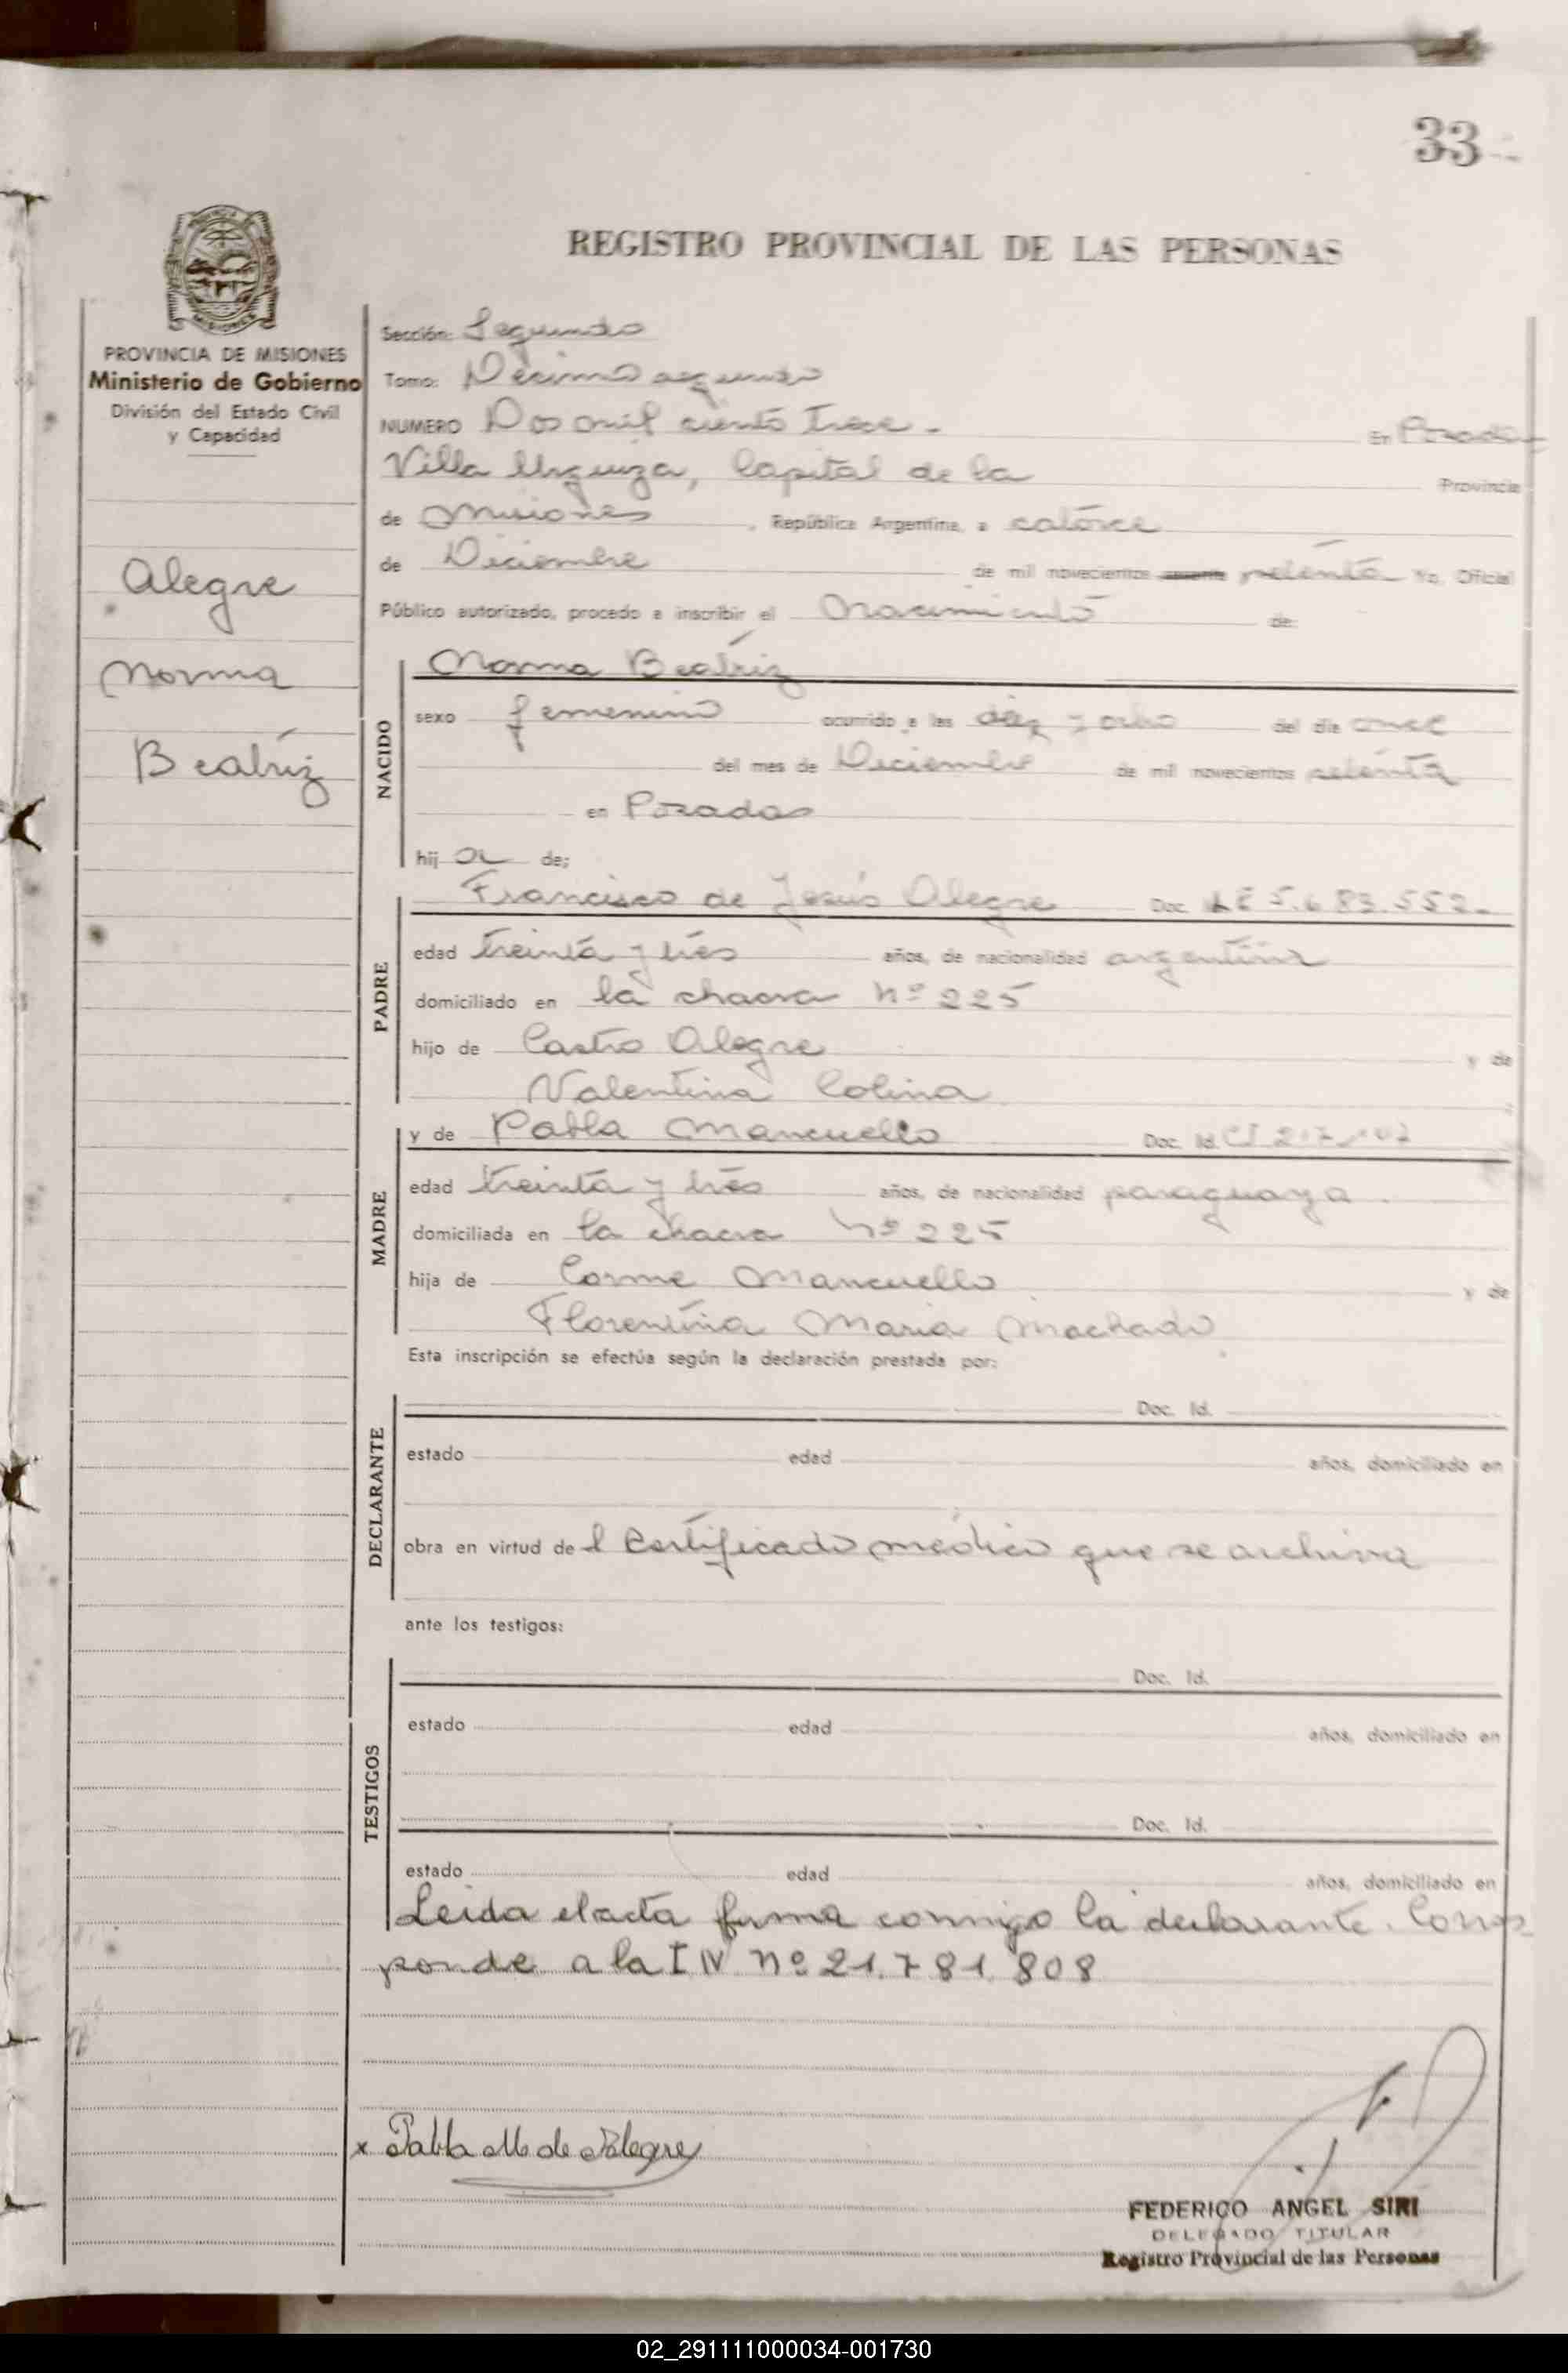 33
REGISTRO PROVINCIAL DE LAS PERSONAS
PROVINCIA DE MISIONES
Ministerio de Gobierno
División del Estado Civil
y Capacidad
Alegre
Norma
Beatríz
Sección: Segunda
Tomo: Décimo segundo
NUMERO Dos mil ciento trece. En Posadas
Villa Urquiza, Capital de la Provincia
de Misiones, República Argentina, a catorce
de Diciembre de mil novecientos sesenta setenta Yo, Oficial
Público autorizado, procedo a inscribir el Nacimiento de:
NACIDO
Norma Beatríz
sexo femenino ocurrido a las diez y ocho del día once
del mes de Diciembre de mil novecientos setenta
en Posadas
hij a de;
PADRE
Francisco de Jesús Alegre Doc. LE 5.683.552.
edad treinta y tres años, de nacionalidad argentina
domiciliado en la chacra Nº 225
hijo de Castro Alegre y de
Valentina Colina
MADRE
y de Pabla Mancuello Doc. Id. CI
edad treinta y tres años, de nacionalidad paraguaya.
domiciliada en la chacra Nº 225
hija de Cosme Mancuello y de
Florentina María Machado
Esta inscripción se efectúa según la declaración prestada por:
DECLARANTE
Doc. Id.
estado edad años, domiciliado en
obra en virtud de l Certificado médico que se archiva
ante los testigos:
TESTIGOS
Doc. Id.
estado edad años, domiciliado en
Doc. Id.
estado edad años, domiciliado en
Leída el acta firma conmigo la declarante. Corres
ponde a la I N Nº 21.781.808
x Pabla M de Alegre
FEDERICO ANGEL SIRI
DELEGADO TITULAR
Registro Provincial de las Personas
02_291111000034-001730